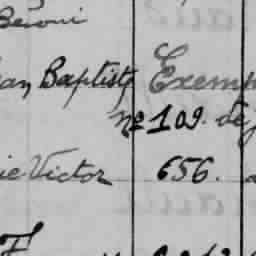 Benoni
an Baptiste Exem
nº 109. dé
ie Victor 656.